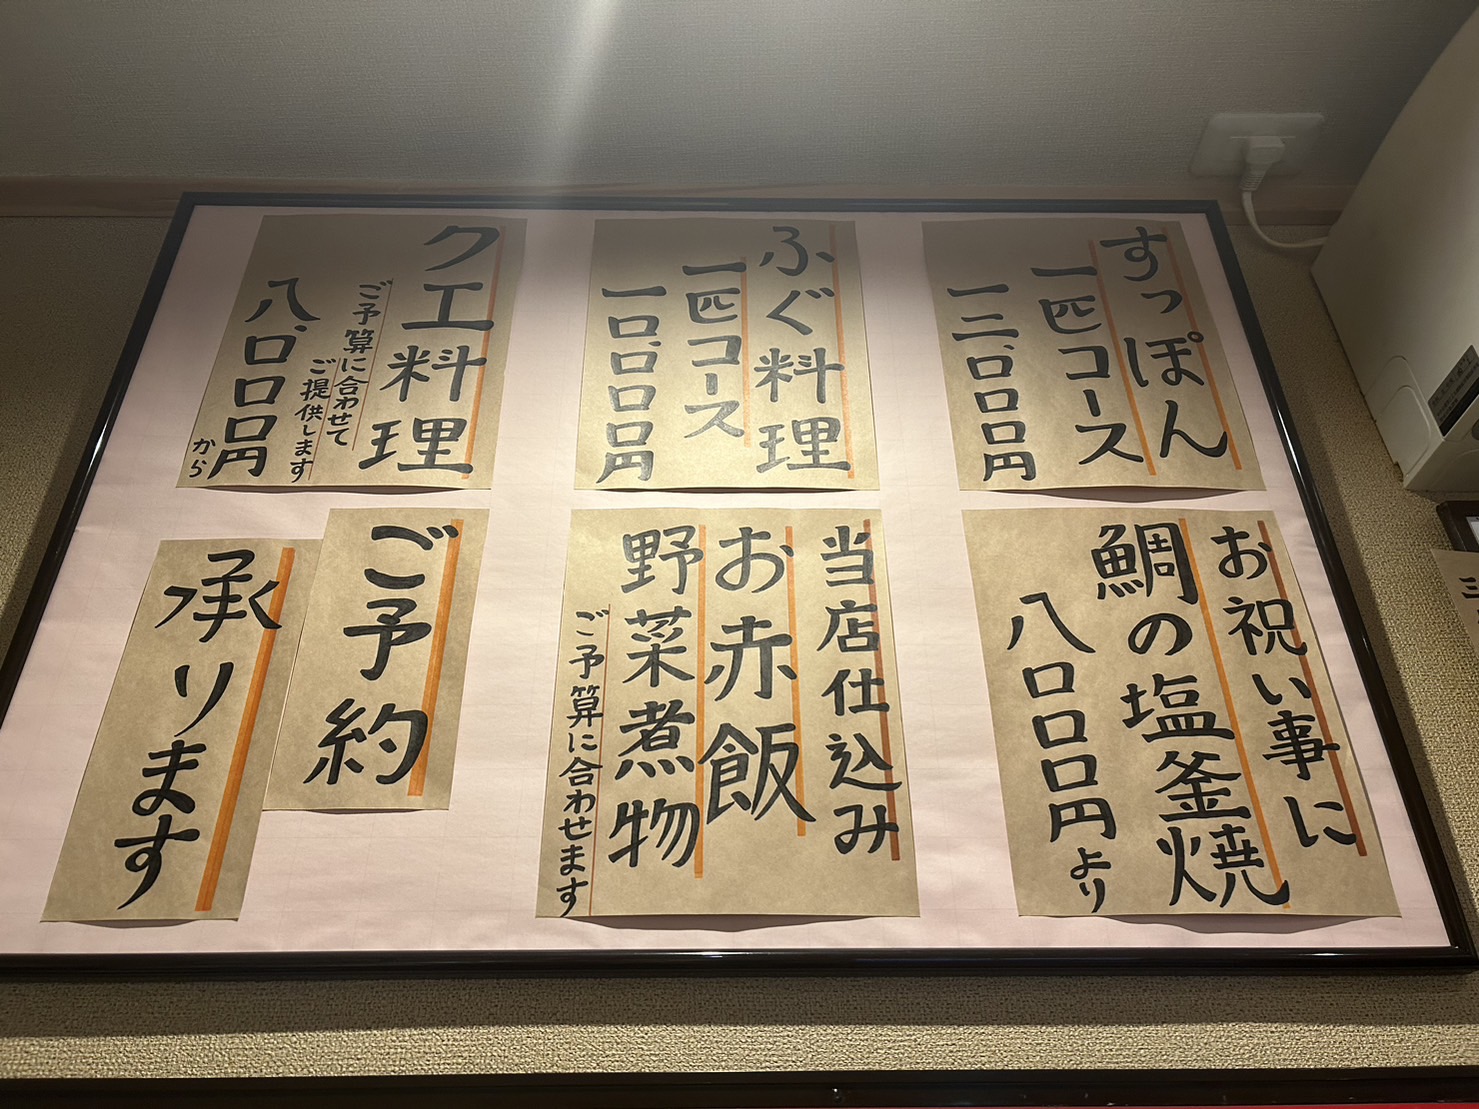 すっぽん
一匹コース
一三、〇〇〇円
ふぐ料理
一匹コース
一〇、〇〇〇円
クエ料理
ご予算に合わせて
ご提供します
八、〇〇〇円
から
お祝い事に
鯛の塩釜焼
八〇〇〇円より
当店仕込み
お赤飯
野菜煮物
ご予算に合わせます
ご予約
承ります